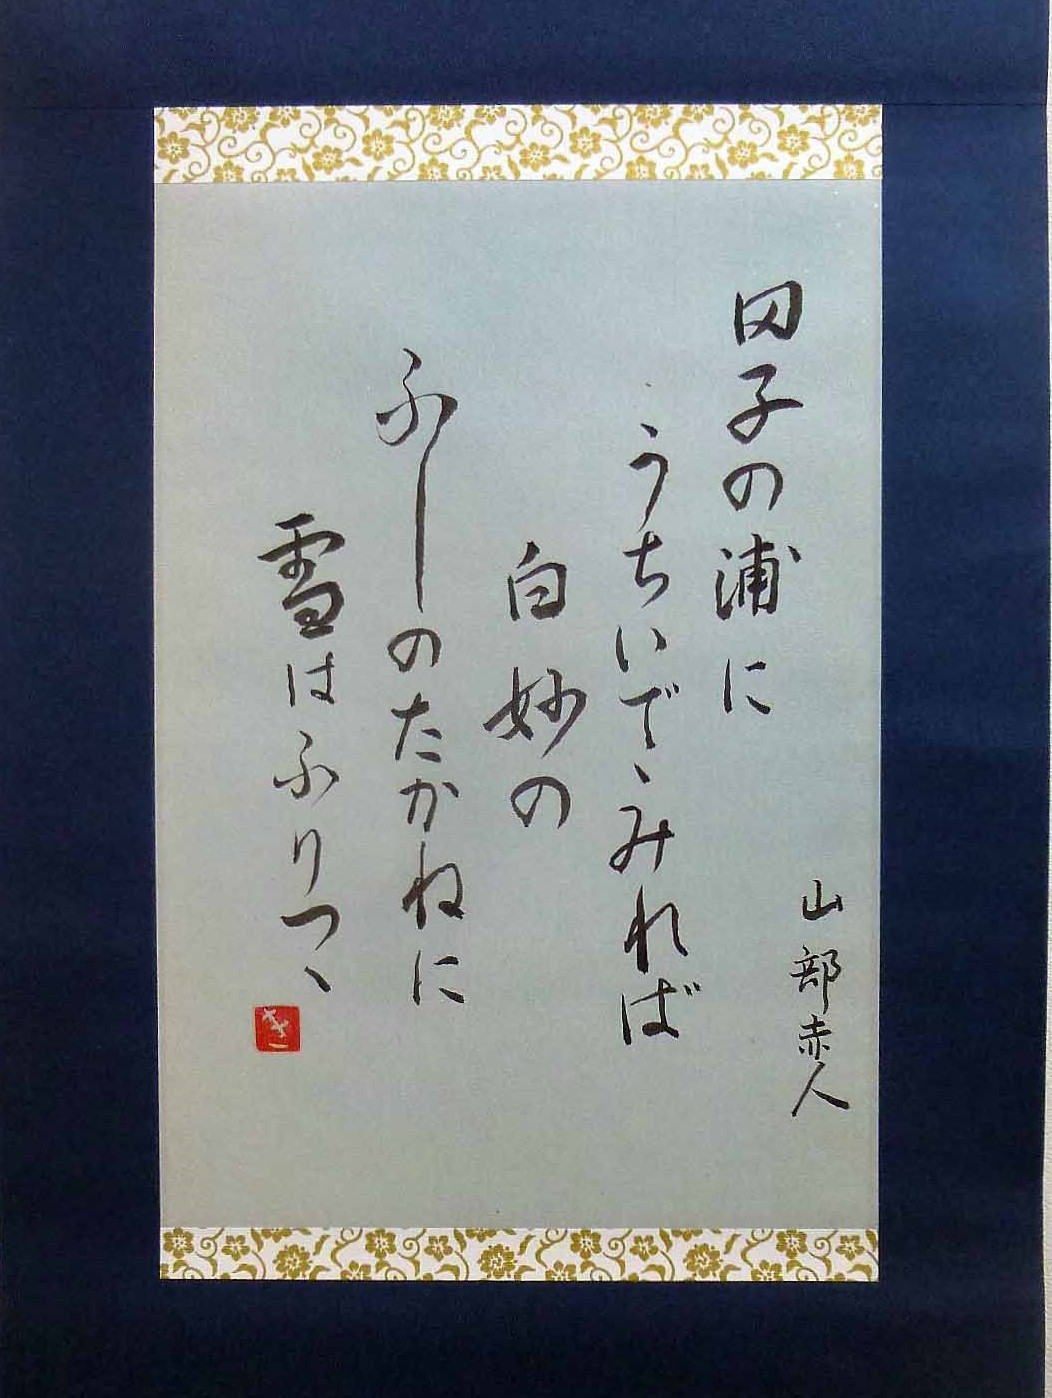 山部赤人
田子の浦に
うちいでゝみれば
白妙の
ふしのたかねに
雪はふりつゝ